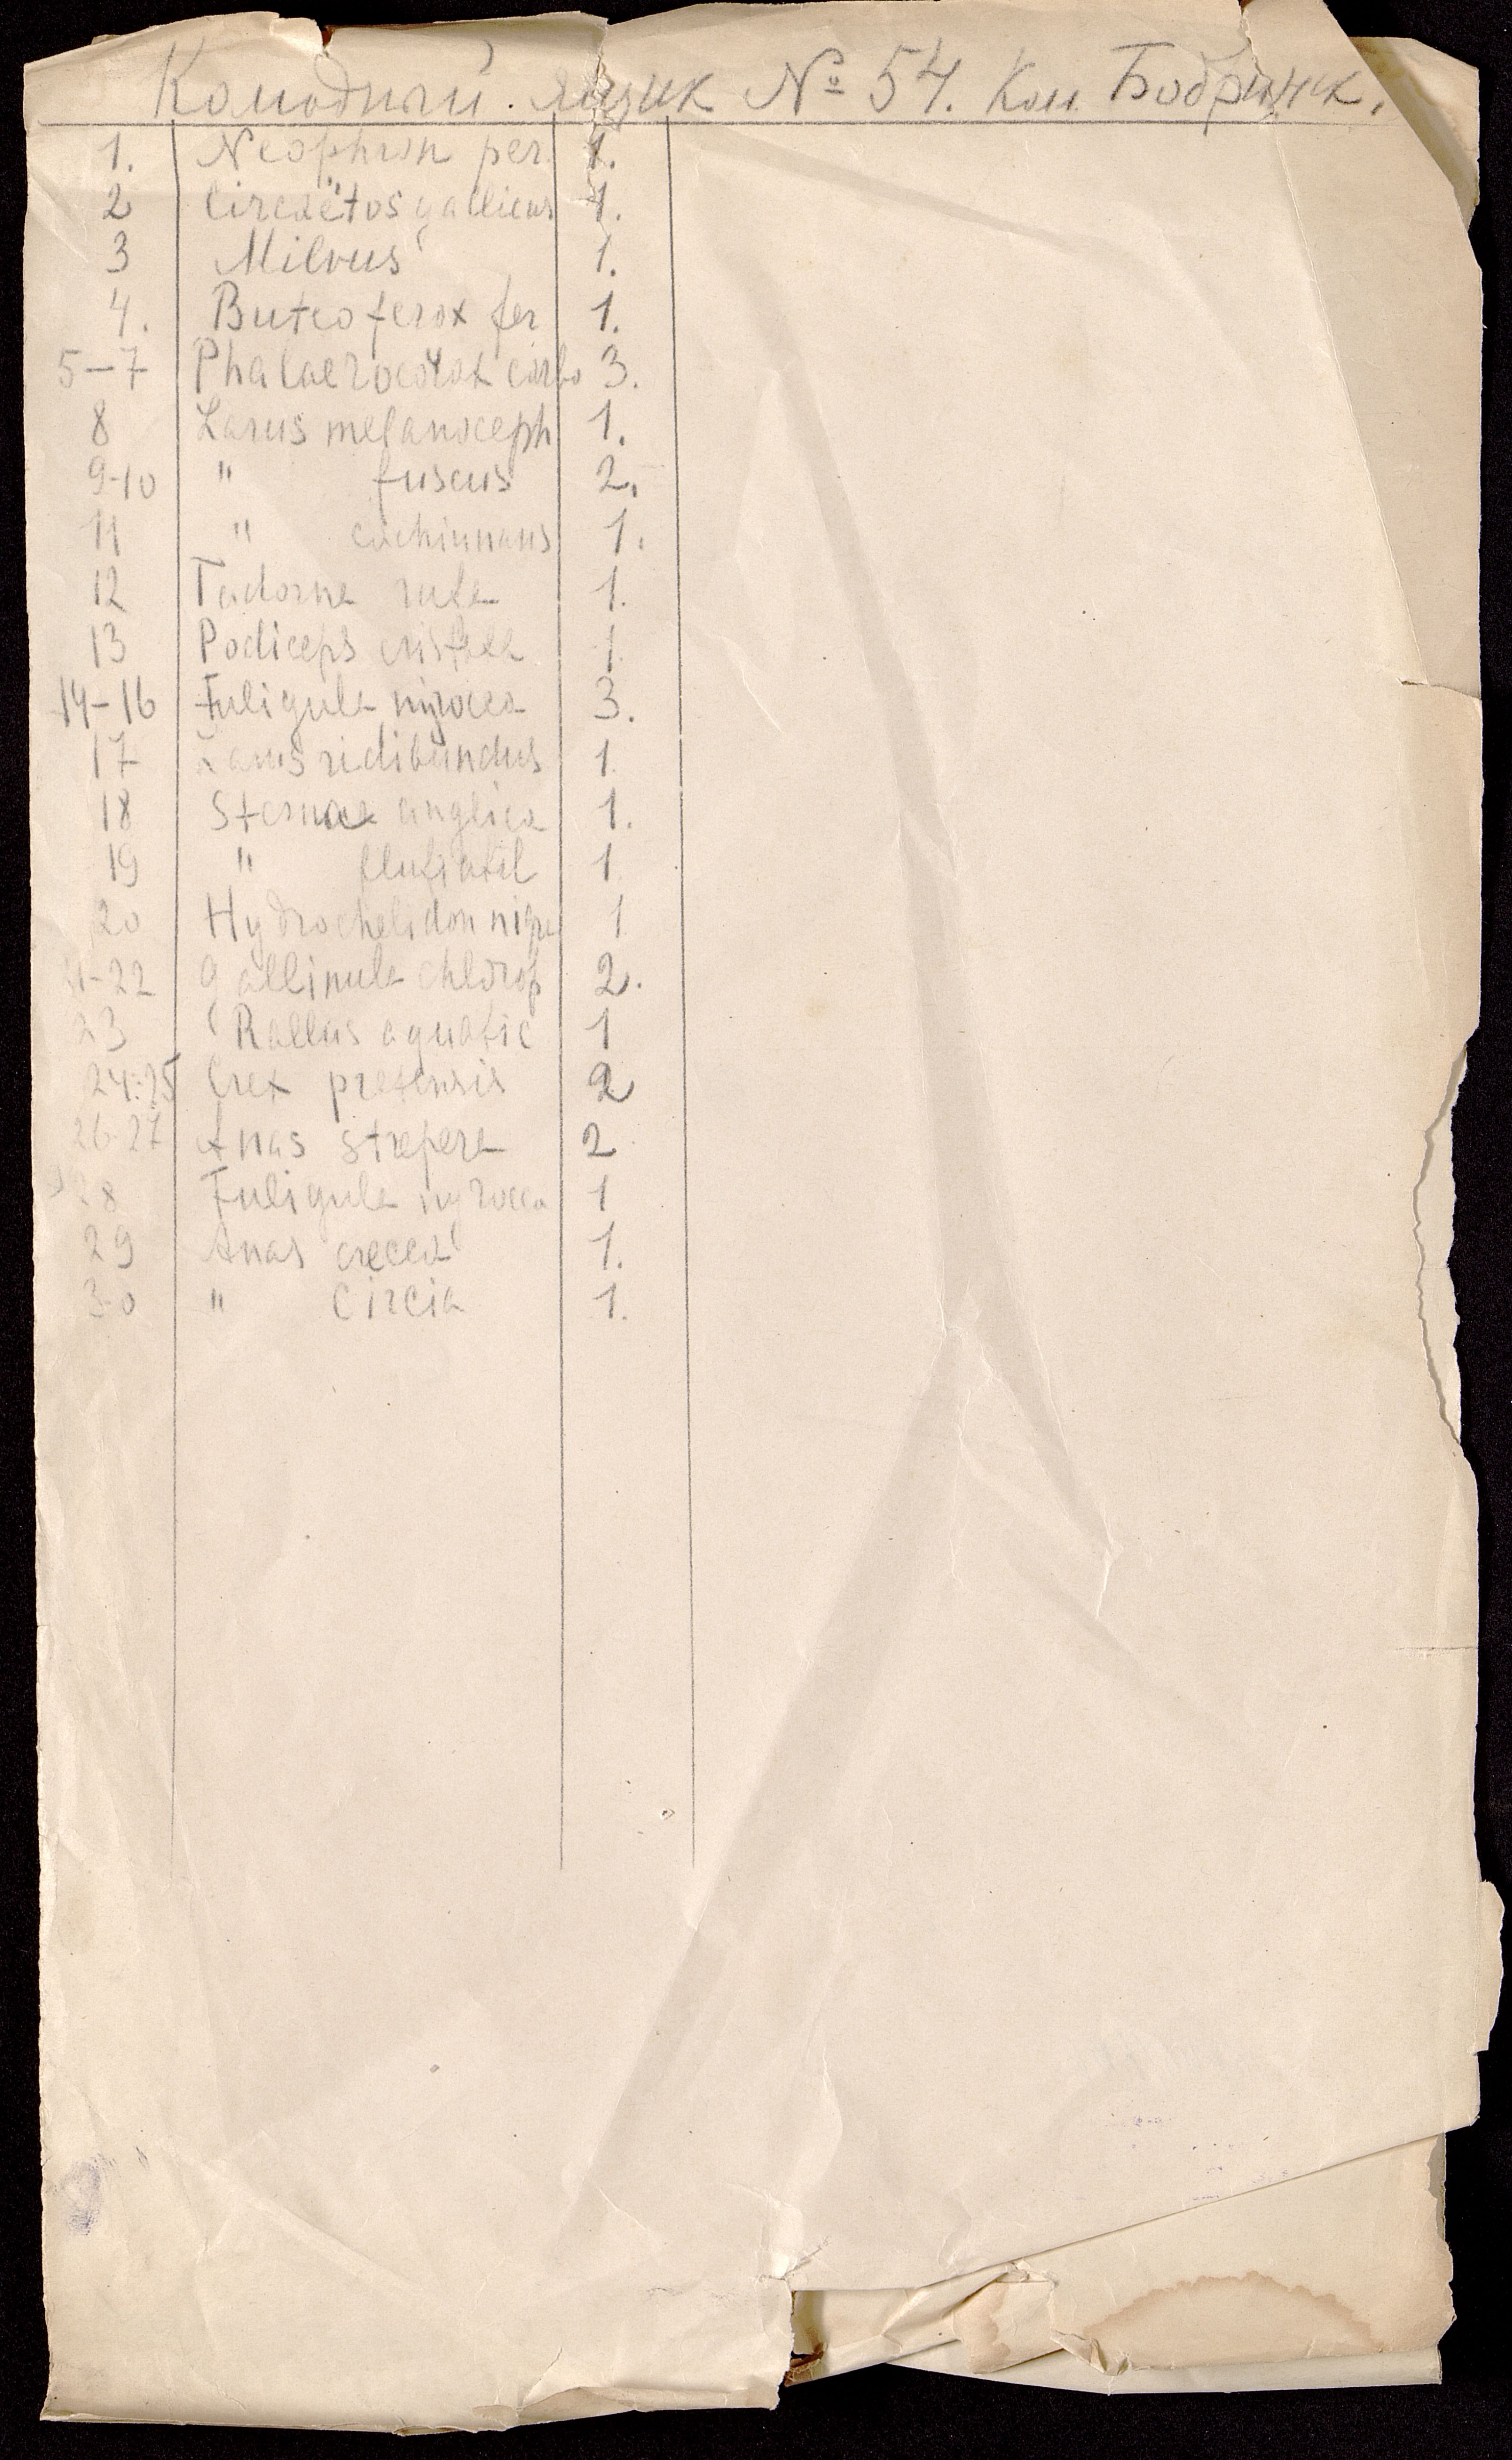 Комодный ящик № 54. Кол. Бобринск.
1. Neophron per. 1.
2 Circaëtos gallicus 1.
3 Milvus 1.
4. Buteo ferox fer 1.
5-7 Phalacrocorax carbo 3.
8 Larus melanoceph 1.
9-10 " fuscus 2.
11 " cachinnans 1.
12 Tadorna ruta 1.
13 Podiceps cristata 1
14-16 Fuligula nyroca 3.
17 Larus ridibundus 1
18 Sterna anglica 1.
19 " flufiatil 1
20 Hydrochelidon nigra 1
21-22 Gallinula chlorop 2.
23 Rallus aquatic 1
24-25 Crex pratensis 2
26-27 Anas strepera 2
28 Fuligula nyroca 1
29 Anas crecca 1.
30 " circia 1.